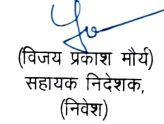 (विजय प्रकाश मौर्य)
सहायक निदेशक,
(निवेश)